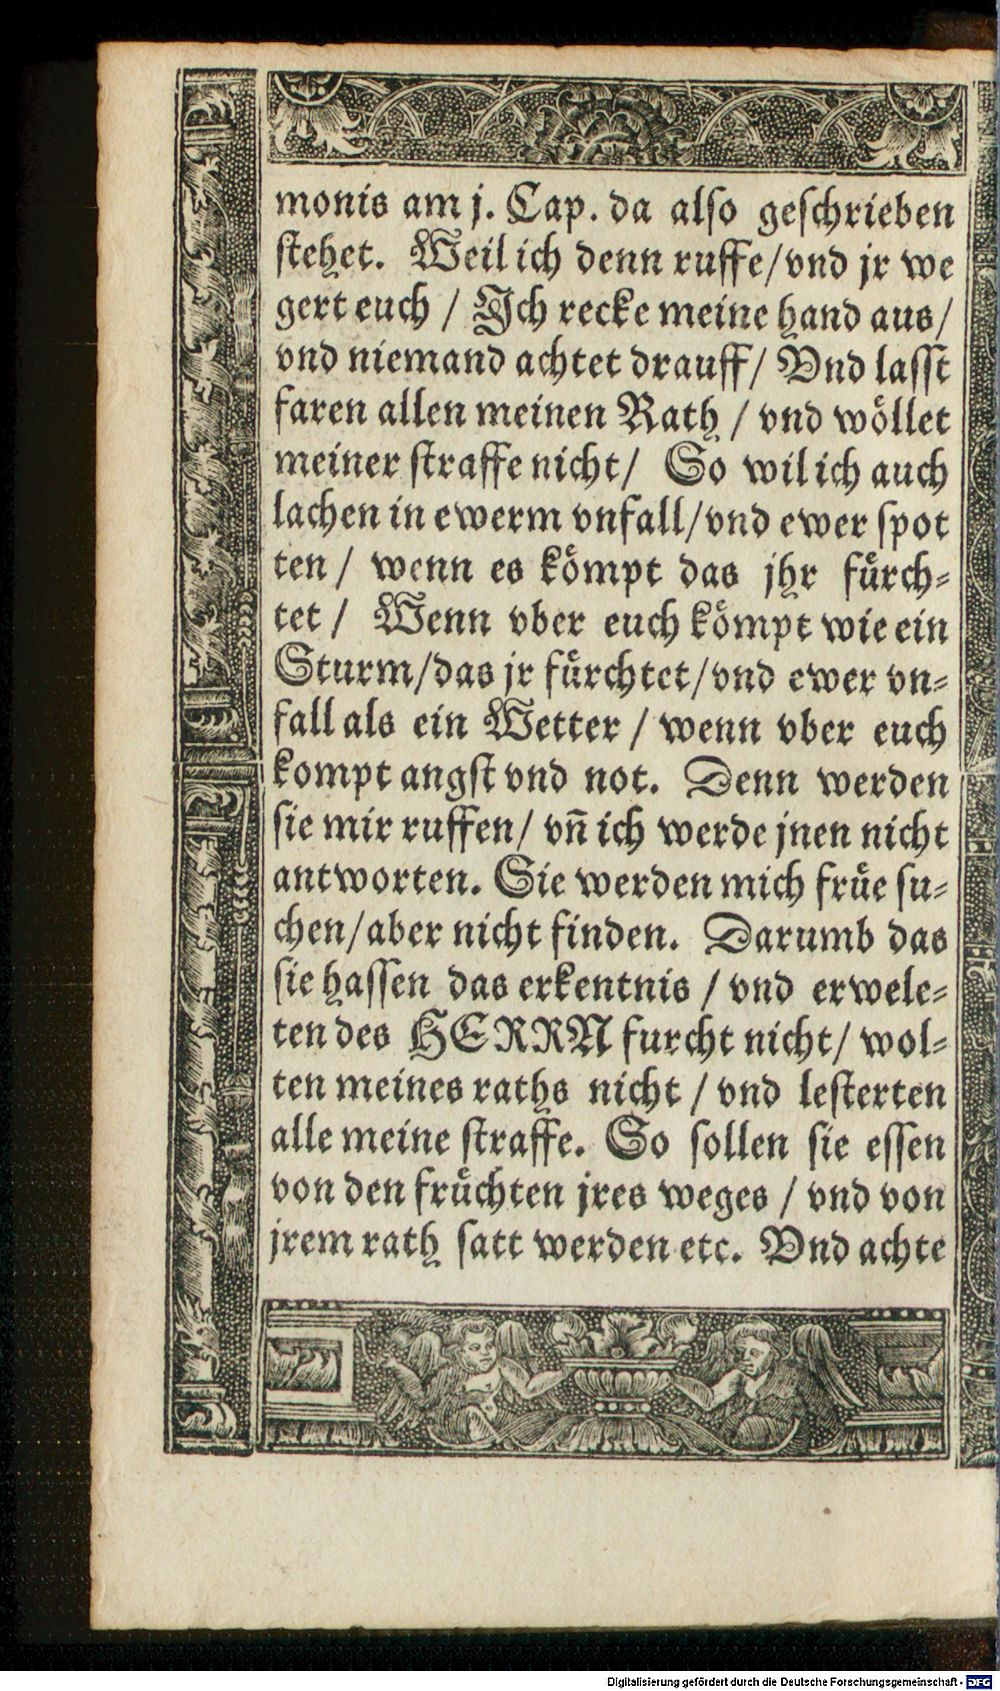 monis am j. Cap. da also geschrieben
stehet. Weil ich denn ruffe/vnd jr we
gert euch / Ich recke meine hand aus/
vnd niemand achtet drauff/ Vnd lasst
faren allen meinen Rath / vnd wöllet
meiner straffe nicht/ So wil ich auch
lachen in ewerm vnfall/vnd ewer spot
ten / wenn es kömpt das jhr fürch-
tet / Wenn vber euch kömpt wie ein
Sturm/das jr fürchtet/vnd ewer vn-
fall als ein Wetter / wenn vber euch
kompt angst vnd not. Denn werden
sie mir ruffen/ vn̄ ich werde jnen nicht
antworten. Sie werden mich früe su-
chen/aber nicht finden. Darumb das
sie hassen das erkentnis / vnd erwele-
ten des HERRN furcht nicht/ wol-
ten meines raths nicht / vnd lesterten
alle meine straffe. So sollen sie essen
von den früchten jres weges / vnd von
jrem rath satt werden etc. Vnd achte
Digitalisierung gefördert durch die Deutsche Forschungsgemeinschaft - DFG